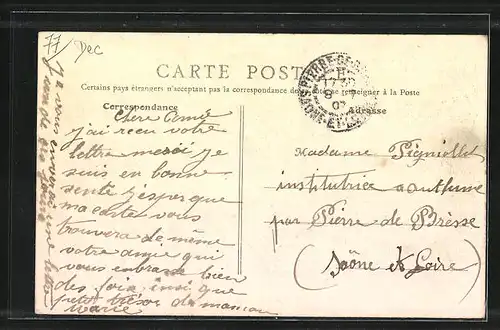 77 Dec
CARTE POSTALE
Certains pays étrangers n'acceptant pas la correspondance de ce côté, se renseigner à la Poste
Correspondance
Adresse
Chere Amie
j'ai recu votre
lettre merci je
suis en bonne
senté j'esper que
ma carte vous
trouvera de même
votre amie qui
vous embrasse bien
des fois insi que
petit trésor de maman
Marie
Je vous envoyrai une lettre
Madame Pignollet
institutrice a outhume
par Pierre de Bresse
(Saône et Loire)